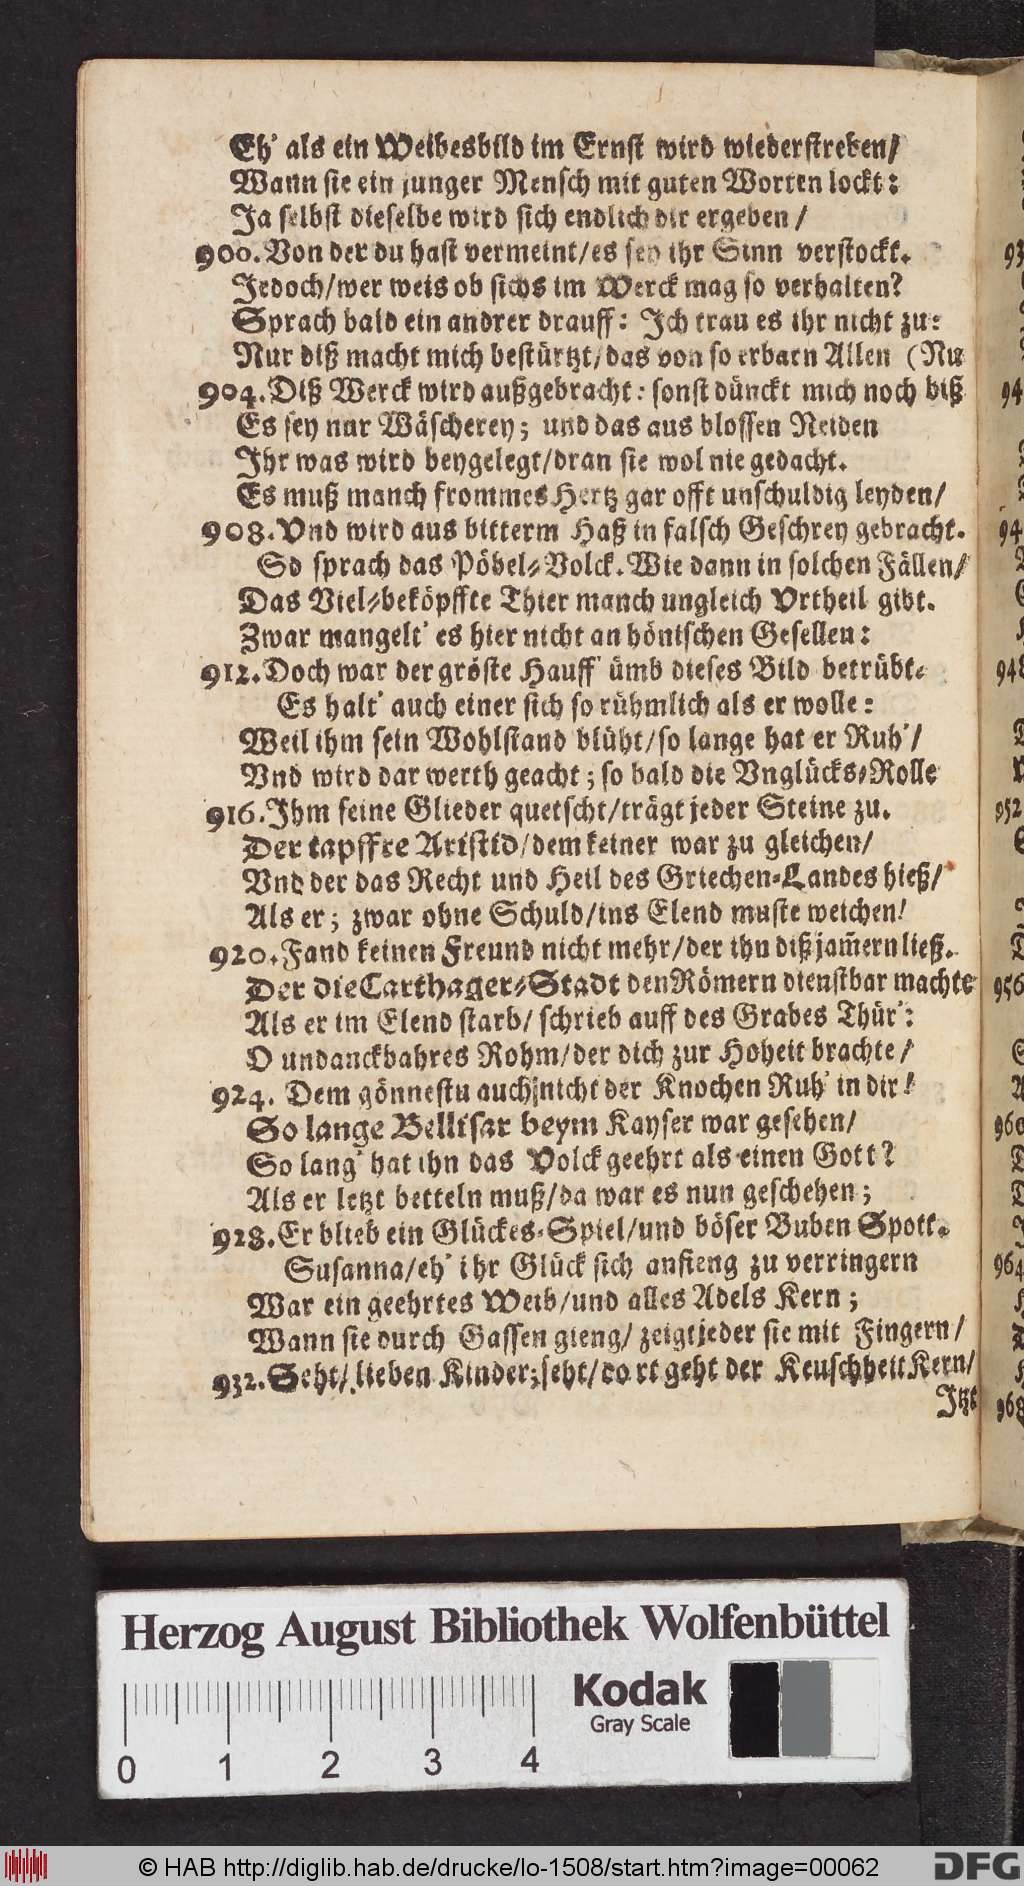 Eh' als ein Weibesbild im Ernst wird wiederstreben/
Wann sie ein junger Mensch mit guten Worten lockt:
Ja selbst dieselbe wird sich endlich dir ergeben/
900. Von der du hast vermeint/es sey ihr Sinn verstockt.
Jedoch/wer weis ob sichs im Werck mag so verhalten?
Sprach bald ein andrer drauff: Ich trau es ihr nicht zu:
Nur diß macht mich bestürtzt/das von so erbarn Alten (Nu
904. Diß Werck wird außgebracht: sonst dünckt mich noch biß
Es sey nur Wäscherey; und das aus blossen Neiden
Ihr was wird beygelegt/dran sie wol nie gedacht.
Es muß manch frommes Hertz gar offt unschuldig leyden/
908. Vnd wird aus bitterm Haß in falsch Geschrey gebracht.
So sprach das Pöbel-Volck. Wie dann in solchen Fällen/
Das Viel-beköpffte Thier manch ungleich Vrtheil gibt.
Zwar mangelt' es hier nicht an hönischen Gesellen:
912. Doch war der gröste Hauff' ümb dieses Bild betrübt.
Es halt' auch einer sich so rühmlich als er wolle:
Weil ihm sein Wohlstand blüht/so lange hat er Ruh'/
Vnd wird dar werth geacht; so bald die Vnglücks-Rolle
916. Ihm seine Glieder quetscht/trägt jeder Steine zu.
Der tapffre Aristid/dem keiner war zu gleichen/
Vnd der das Recht und Heil des Griechen-Landes hieß/
Als er; zwar ohne Schuld/ins Elend muste weichen!
920. Fand keinen Freund nicht mehr/der ihn diß jam̃ern ließ.
Der die Carthager-Stadt den Römern dienstbar machte
Als er im Elend starb/ schrieb auff des Grabes Thür':
O undanckbahres Rohm/der dich zur Hoheit brachte/
924. Dem gönnestu auch nicht der Knochen Ruh' in dir!
So lange Bellisar beym Kayser war gesehen/
So lang' hat ihn das Volck geehrt als einen Gott?
Als er letzt betteln muß/da war es nun geschehen;
928. Er blieb ein Glückes-Spiel/und böser Buben Spott.
Susanna/eh' ihr Glück sich anfieng zu verringern
War ein geehrtes Weib/und alles Adels Kern;
Wann sie durch Gassen gieng/ zeigt jeder sie mit Fingern/
932. Seht/ lieben Kinder; seht/dort geht der Keuschheit Kern/
Jtzt
93
94
94
948
952
956
960
964
968
Herzog August Bibliothek Wolfenbüttel
Kodak
Gray Scale
0 1 2 3 4
© HAB http://diglib.hab.de/drucke/lo-1508/start.htm?image=00062
DFG